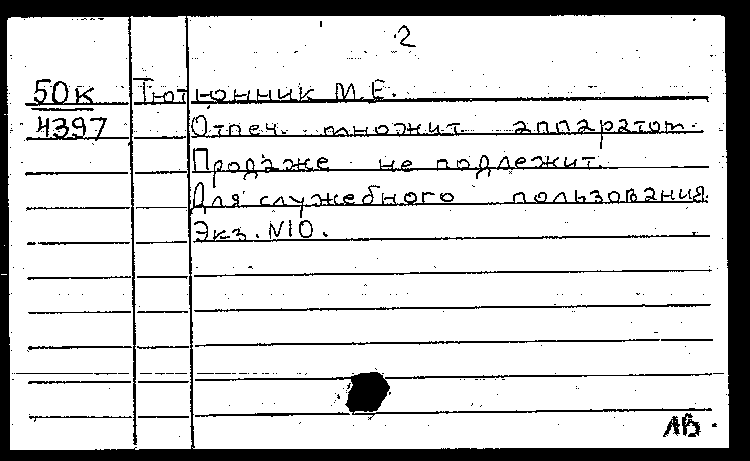 2
50к Тютюнник М.Е.
4397 Отпеч. множит. аппаратом.
Продаже не подлежит.
Для служебного пользования.
Экз. N10.
ЛВ.